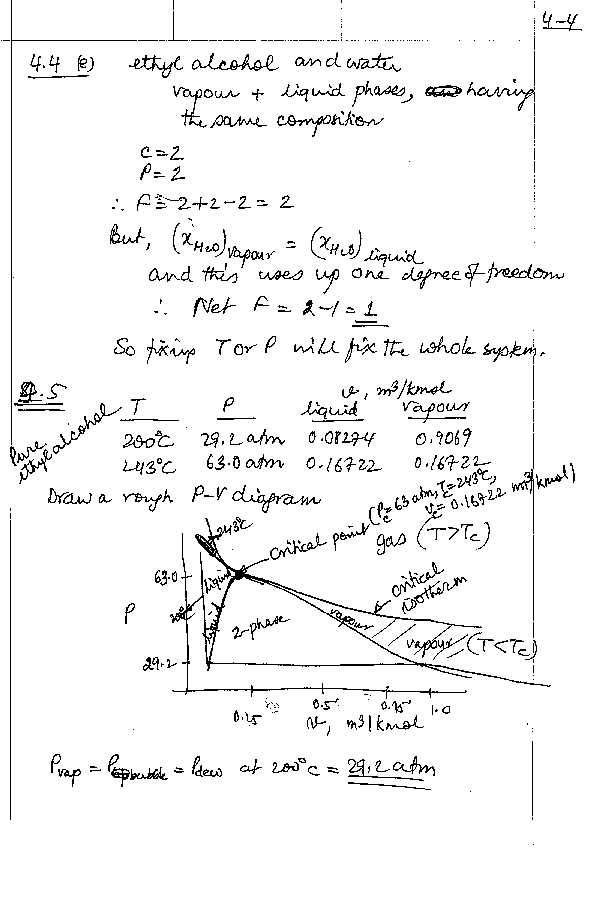 4-4
4.4 (e) ethyl alcohol and water
vapour + liquid phases, having
the same composition
C = 2
P = 2
∴ F = 2+2-2 = 2
But, (x_H2O)vapour = (x_H2O)liquid
and this uses up one degree of freedom
∴ Net F = 2-1 = 1
So fixing T or P will fix the whole system.
4.5
Pure ethyl alcohol
v, m³/kmol
T P liquid vapour
200°C 29.2 atm 0.08274 0.9069
243°C 63.0 atm 0.16722 0.16722
Draw a rough P-V diagram
243°C
critical point (Pc = 63 atm, Tc = 243°C,
vc = 0.16722 m³/kmol)
gas (T>Tc)
63.0
liquid
critical
isotherm
200°C
liquid
P
2-phase
vapour
vapour (T<Tc)
29.2
0.25 0.5 0.75 1.0
v, m³/kmol
Pvap = Pbubble = Pdew at 200°C = 29.2 atm